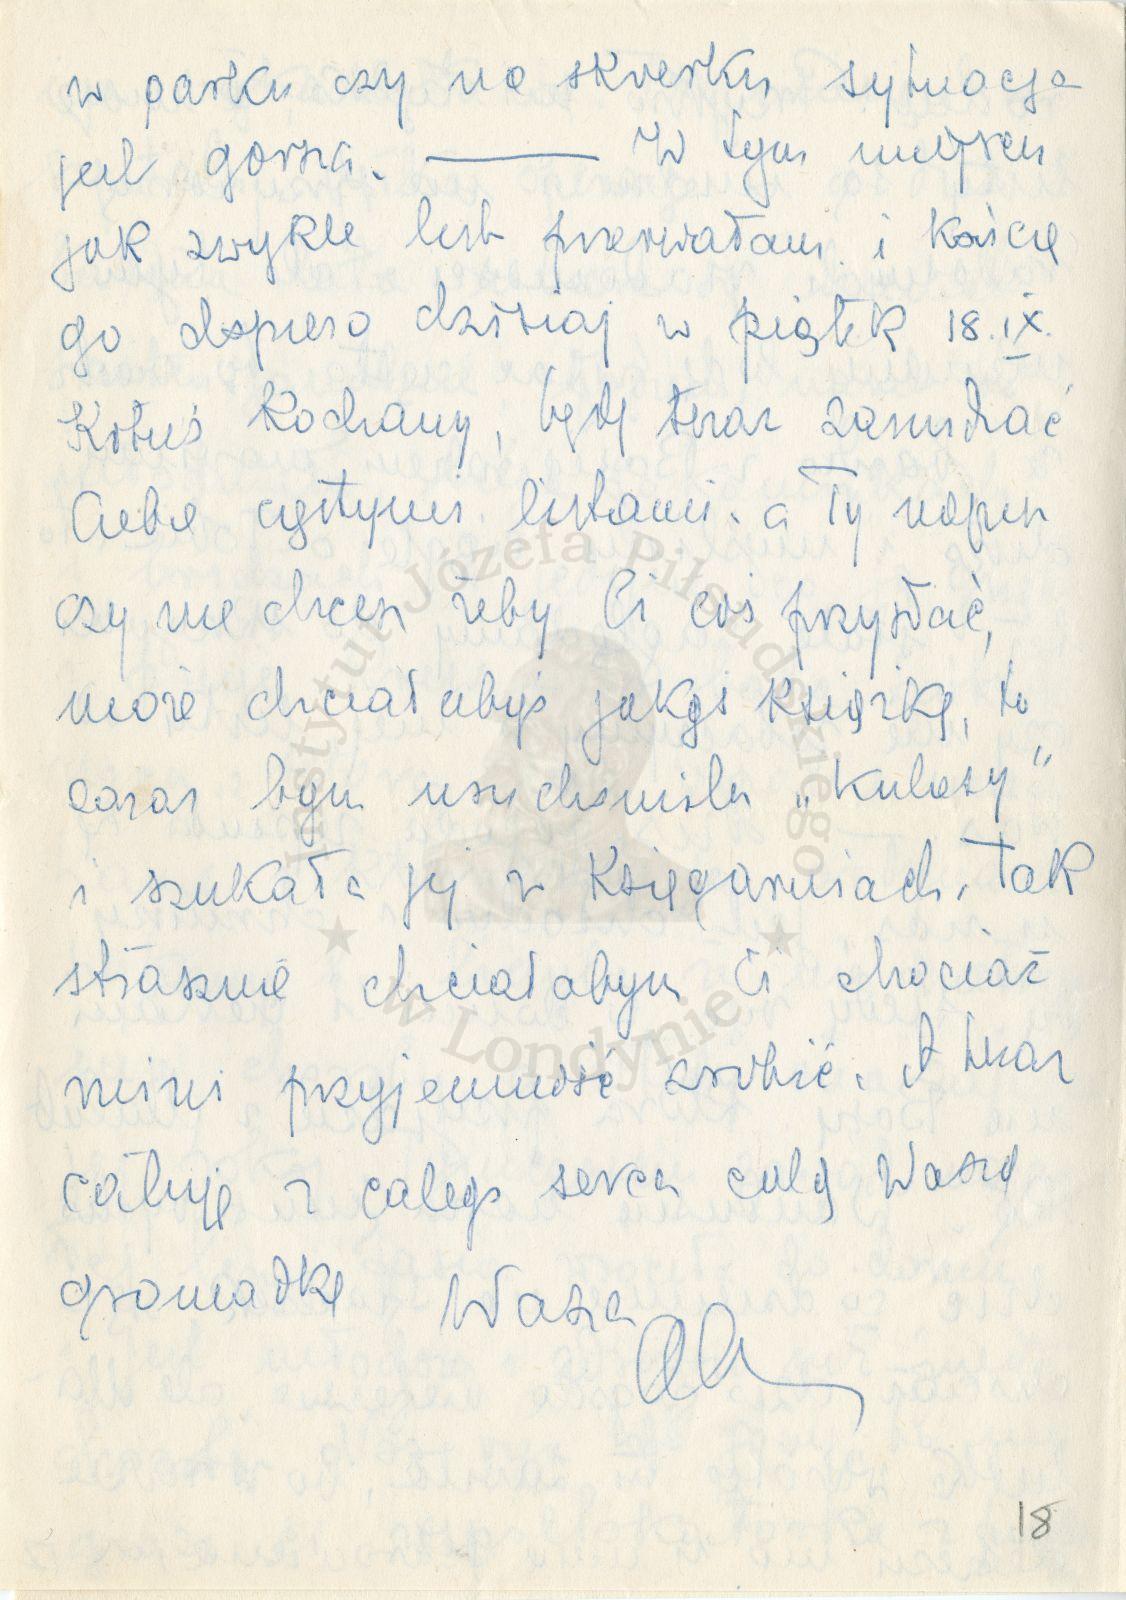 w parku czy na skwerku sytuacja
jest gorsza. — W tym miejscu
jak zwykle list przerwałam i kończę
go dopiero dzisiaj w piątek 18.IX.
Kotuś Kochany, będę teraz zasmiecać
Ciebie częstymi listami. a Ty napisz
czy nie chcesz żeby Ci coś przysłać,
może chciałabyś jakąś książkę, to
zaraz bym uruchomiła „Kulasy"
i szukała jej w Księgarniach. Tak
strasznie chciałabym Ci chociaż
mini przyjemność zrobić. A teraz
całuję z całego serca całą Waszą
gromadkę Wasza
18
Instytut Józefa Piłsudskiego
w Londynie